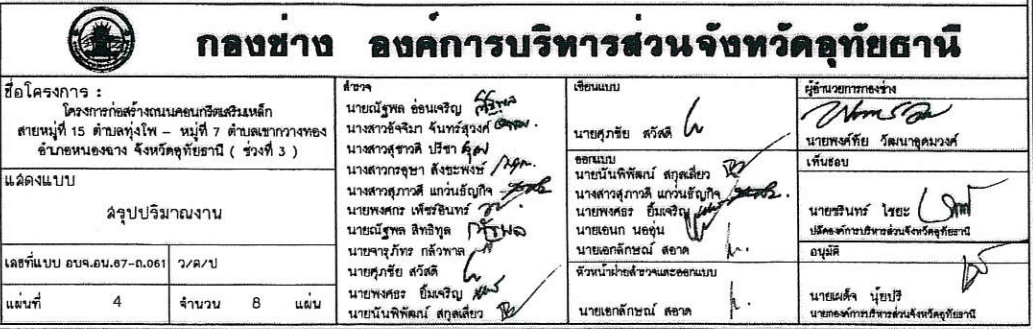 กองช่าง องค์การบริหารส่วนจังหวัดอุทัยธานี
ชื่อโครงการ :
โครงการก่อสร้างถนนคอนกรีตเสริมเหล็ก
สายหมู่ที่ 15 ตำบลทุ่งโพ - หมู่ที่ 7 ตำบลเขากวางทอง
อำเภอหนองฉาง จังหวัดอุทัยธานี ( ช่วงที่ 3 )
แสดงแบบ
สรุปปริมาณงาน
เลขที่แบบ อบจ.อน.67-ถ.061 ว/ด/ป
แผ่นที่ 4 จำนวน 8 แผ่น
สำรวจ
นายณัฐพล อ่อนเจริญ
นางสาวอัจจิมา จันทร์สุวงศ์
นางสาวสุชาวดี ปรีชา
นางสาวกรอุษา สังขะพงษ์
นางสาวสุภาวดี แก่นธัญกิจ
นายพงศกร เพ็ชรอินทร์
นายณัฐพล สิทธิทูล
นายจารุภัทร กล้วพาล
นายศุภชัย สวัสดี
นายพงศธร ยิ้มเจริญ
นายนันพิพัฒน์ สกุลเสี่ยว
เขียนแบบ
นายศุภชัย สวัสดี
ออกแบบ
นายนันพิพัฒน์ สกุลเสี่ยว
นางสาวสุภาวดี แก่นธัญกิจ
นายพงศธร ยิ้มเจริญ
นายเอนก นออุ่น
นายเอกลักษณ์ สอาด
หัวหน้าฝ่ายสำรวจและออกแบบ
นายเอกลักษณ์ สอาด
ผู้อำนวยการกองช่าง
นายพงค์ทัย วัฒนาอุดมวงค์
เห็นชอบ
นายชรินทร์ ไชยะ
ปลัดองค์การบริหารส่วนจังหวัดอุทัยธานี
อนุมัติ
นายเผด็จ นุ้ยปรี
นายกองค์การบริหารส่วนจังหวัดอุทัยธานี